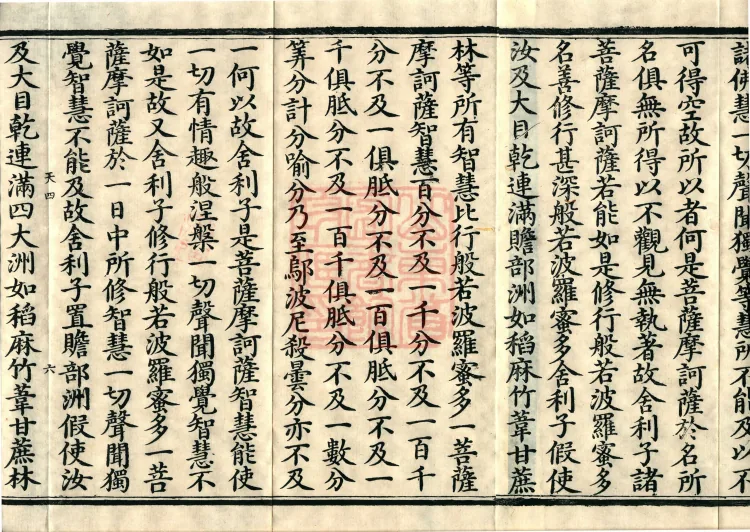 諸佛慧一切聲聞獨覺等慧所不能及以不
可得空故所以者何是菩薩摩訶薩於名所
名俱無所得以不觀見無執著故舍利子諸
菩薩摩訶薩若能如是修行般若波羅蜜多
名善修行甚深般若波羅蜜多舍利子假使
汝及大目乾連滿贍部洲如稻麻竹葦甘蔗
林等所有智慧比行般若波羅蜜多一菩薩
摩訶薩智慧百分不及一千分不及一百千
分不及一俱胝分不及一百俱胝分不及一
千俱胝分不及一百千俱胝分不及一數分
筭分計分喻分乃至鄔波尼殺曇分亦不及
一何以故舍利子是菩薩摩訶薩智慧能使
一切有情趣般涅槃一切聲聞獨覺智慧不
如是故又舍利子修行般若波羅蜜多一菩
薩摩訶薩於一日中所修智慧一切聲聞獨
覺智慧不能及故舍利子置贍部洲假使汝
天四 六
及大目乾連滿四大洲如稻麻竹葦甘蔗林